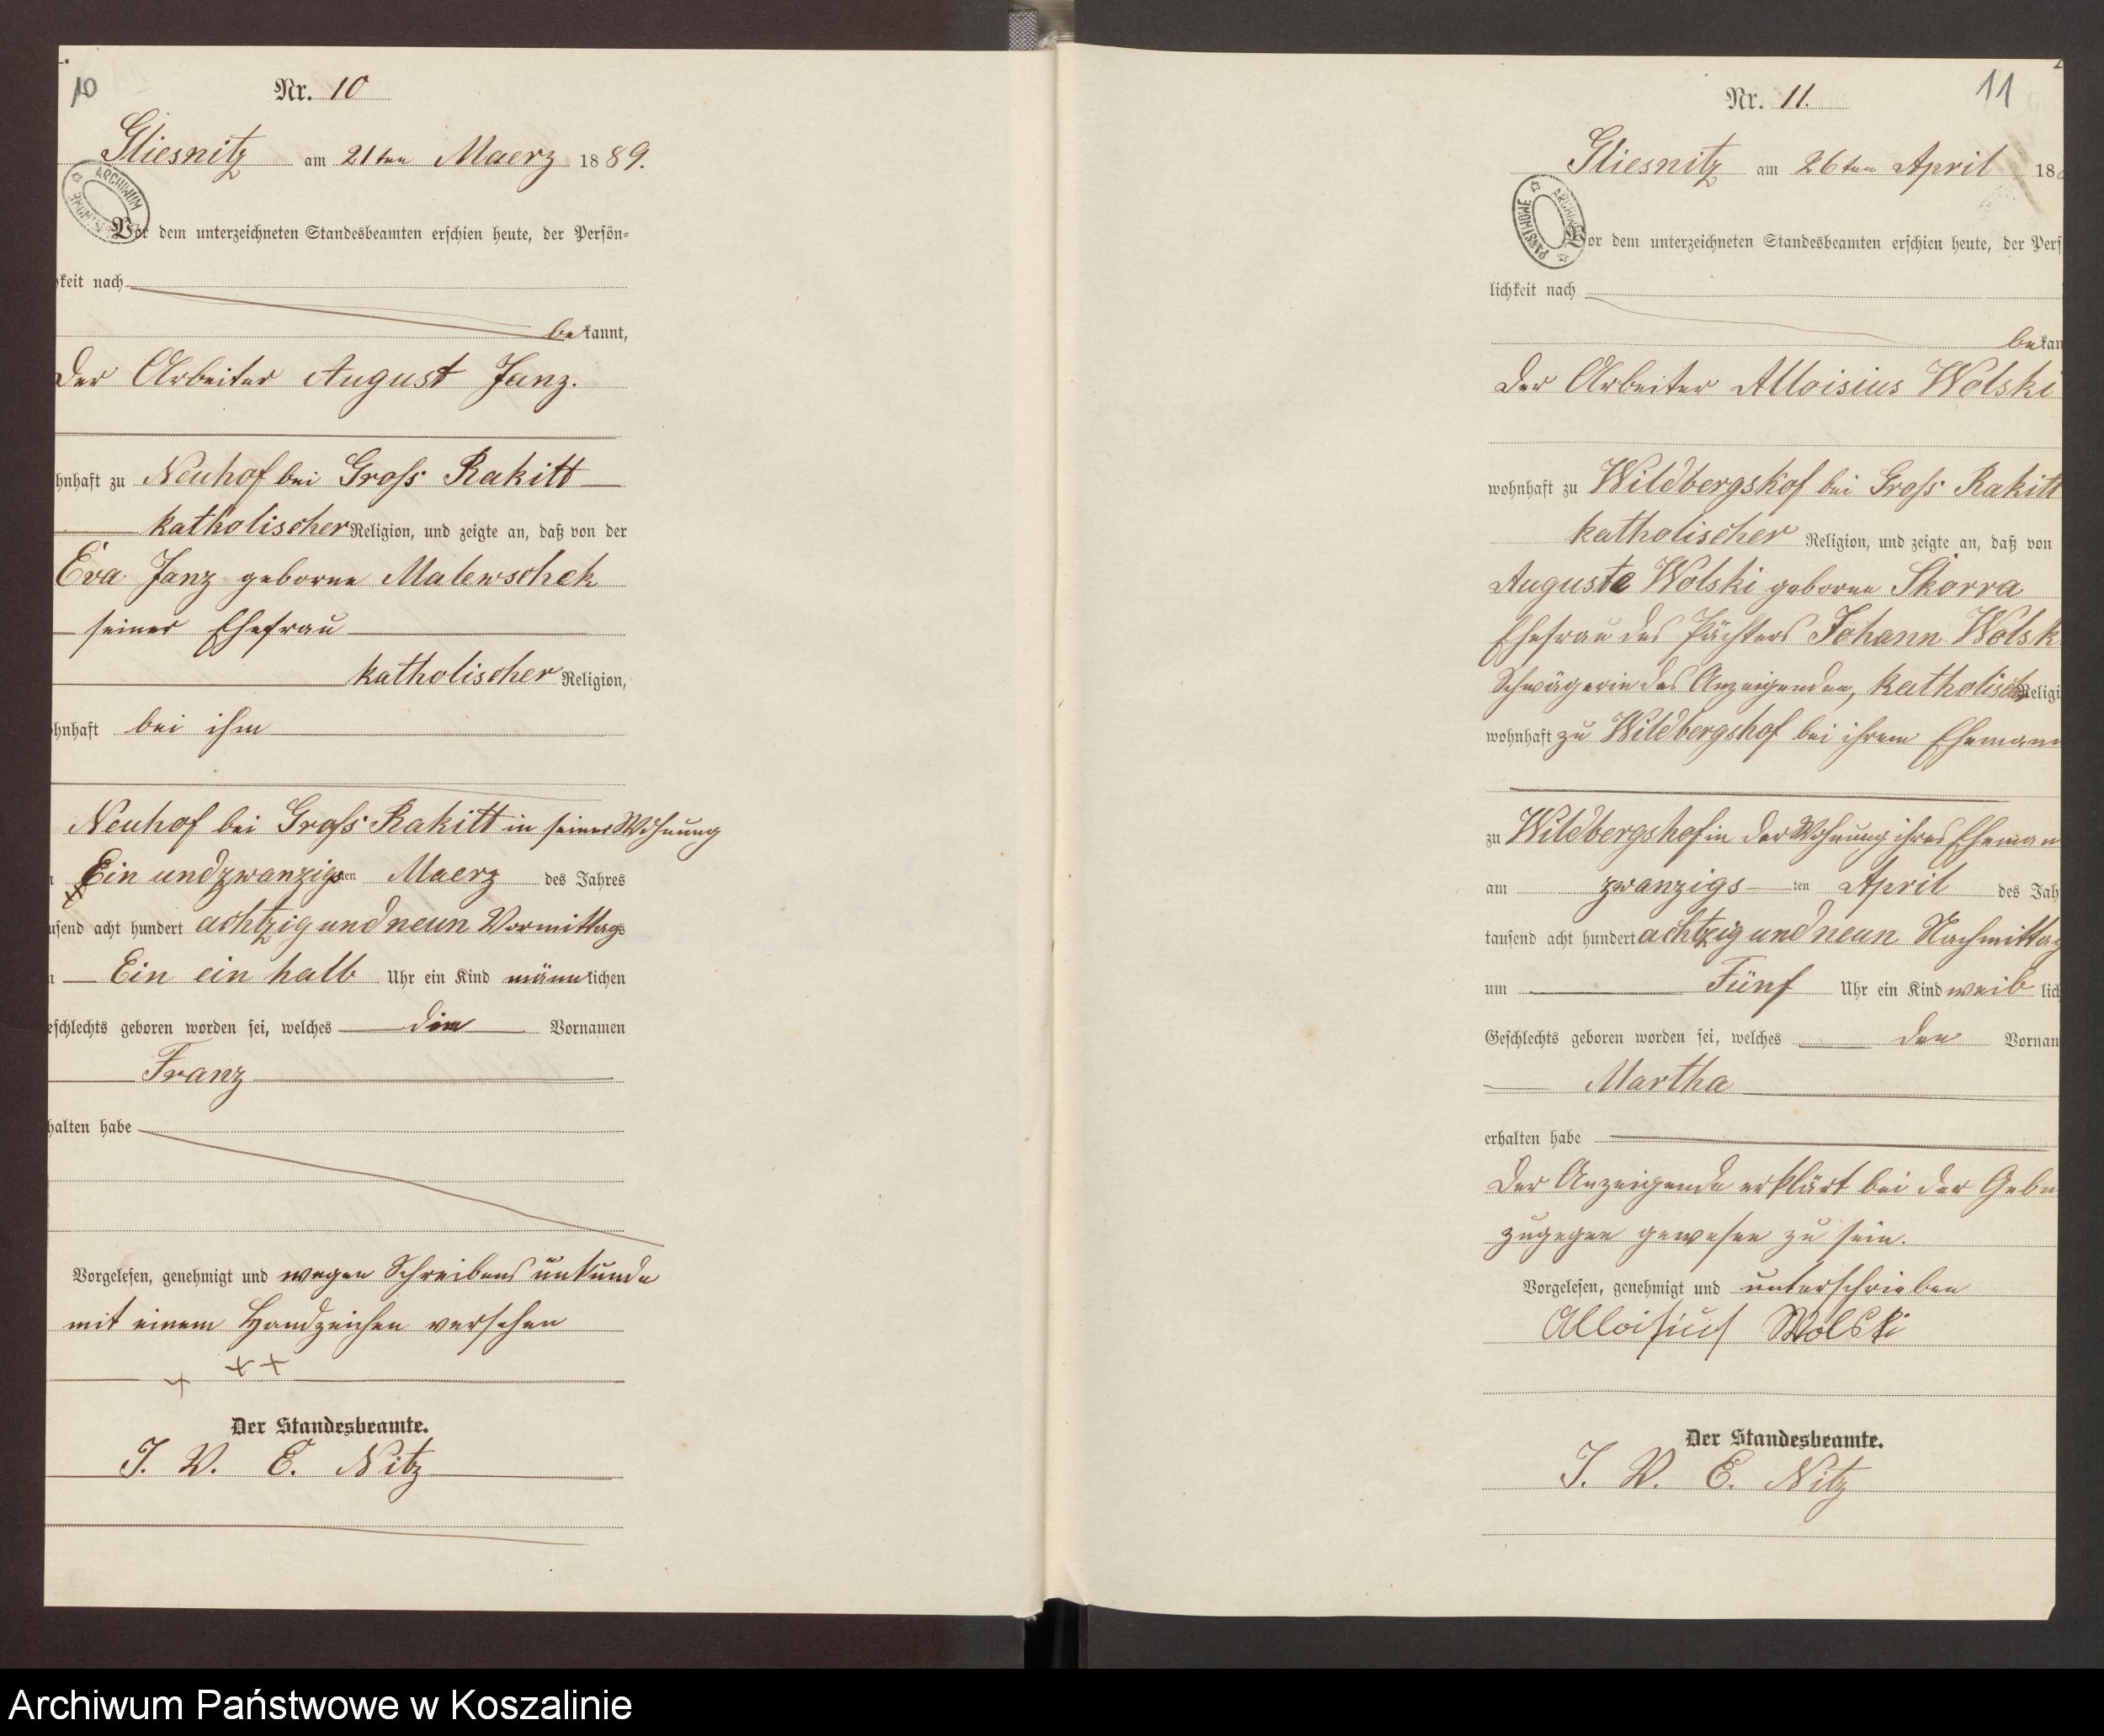 10
Nr. 10
Gliesnitz am 21ten Maerz 1889.
ARCHIWUM
Vor dem unterzeichneten Standesbeamten erschien heute, der Persön=
keit nach
bekannt,
der Arbeiter August Janz.
hnhaft zu Neuhof bei Gross Rakitt
katholischer Religion, und zeigte an, daß von der
Eva Janz geborne Malewschek
seiner Ehefrau
katholischer Religion,
hnhaft bei ihm
Neuhof bei Gross Rakitt in seiner Wohnung
Ein undzwanzigsten Maerz des Jahres
usend acht hundert achtzig und neun Vormittags
Ein ein halb Uhr ein Kind männlichen
eschlechts geboren worden sei, welches den Vornamen
Franz
halten habe
Vorgelesen, genehmigt und wegen Schreibens unkunde
mit einem Handzeichen versehen
+ + +
Der Standesbeamte.
J. V. E. Nitz
11
Nr. 11.
Gliesnitz am 26ten April 18
ARCHIWUM PAŃSTWOWE
Vor dem unterzeichneten Standesbeamten erschien heute, der Pers
lichkeit nach
bekan
der Arbeiter Alloisius Wolski
wohnhaft zu Wildbergshof bei Gross Rakitt
katholischer Religion, und zeigte an, daß von
Auguste Wolski geborne Skorra
Ehefrau des Pächters Johann Wolsk
Schwägerin des Anzeigenden, katholisch Religi
wohnhaft zu Wildbergshof bei ihrem Ehemann
zu Wildbergshof in der Wohnung ihres Eheman
am zwanzigs ten April des Jah
tausend acht hundert achtzig und neun Nachmittag
um Fünf Uhr ein Kind weib lich
Geschlechts geboren worden sei, welches den Vornam
Martha
erhalten habe
Der Anzeigende erklärt bei der Gebu
zugegen gewesen zu sein.
Vorgelesen, genehmigt und unterschrieben
Alloisius Wolski
Der Standesbeamte.
J. V. E. Nitz
Archiwum Państwowe w Koszalinie